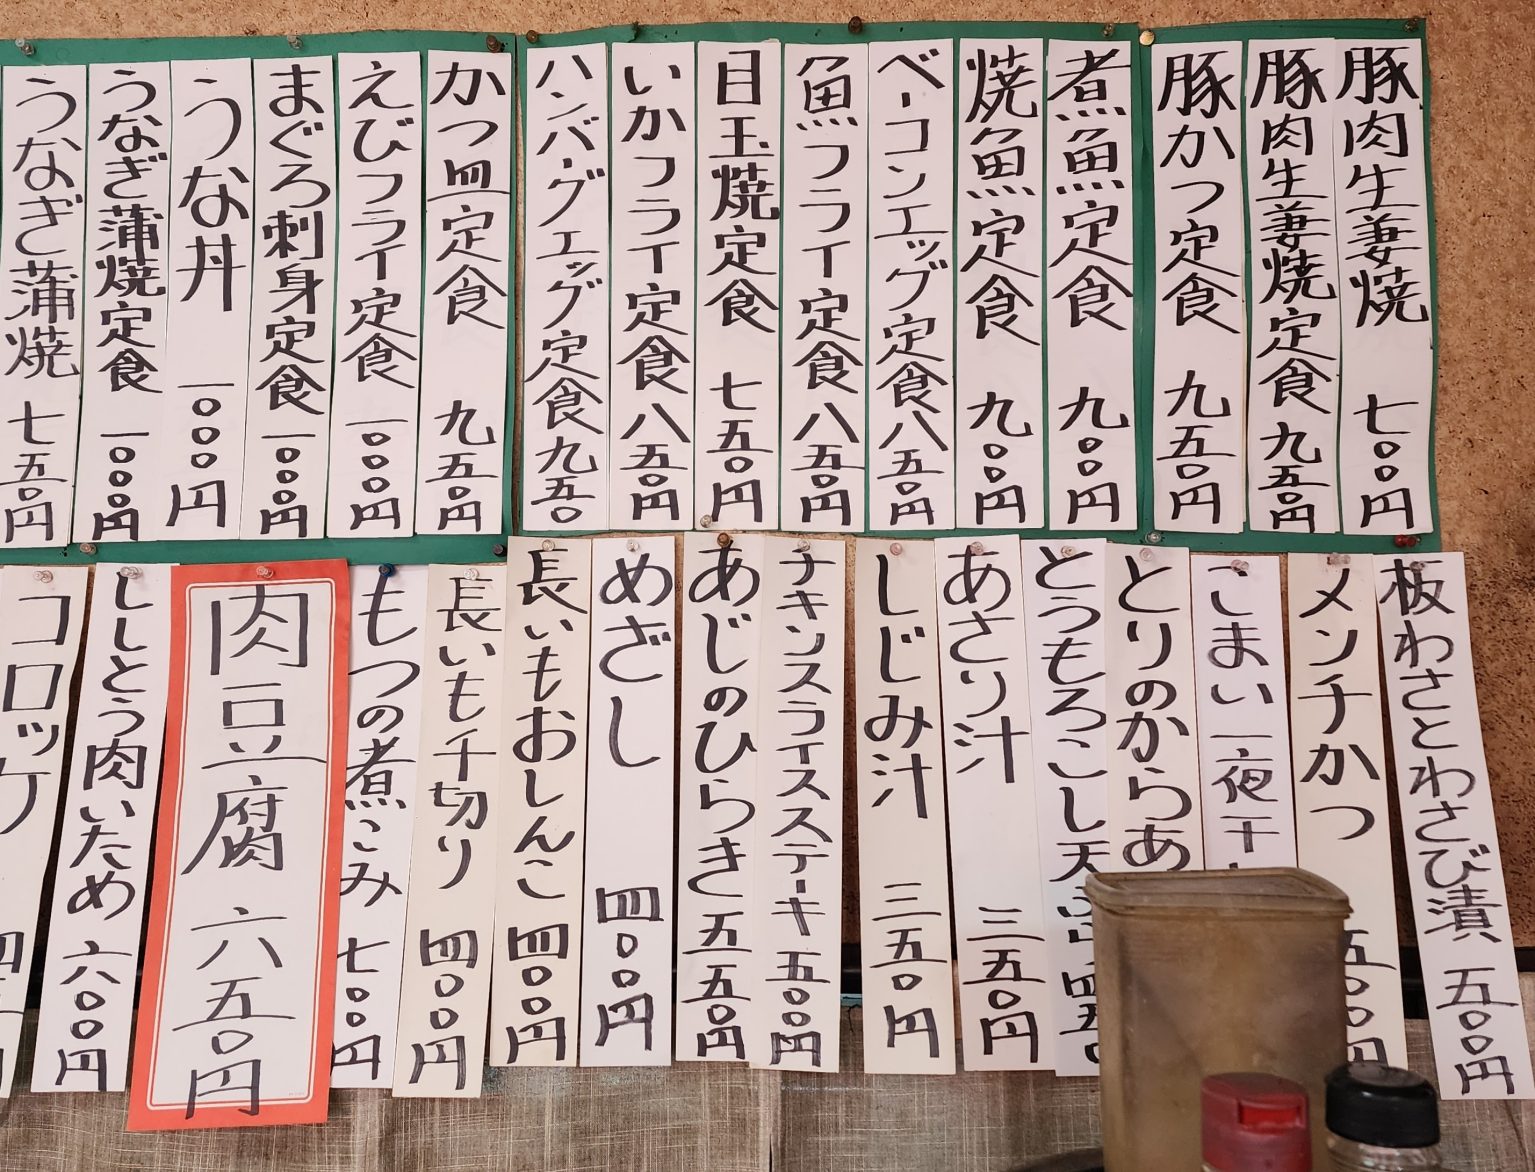 豚肉生姜焼 七〇〇円
豚肉生姜焼定食 九五〇円
豚かつ定食 九五〇円
煮魚定食 九〇〇円
焼魚定食 九〇〇円
ベーコンエッグ定食 八五〇円
魚フライ定食 八五〇円
目玉焼定食 七五〇円
いかフライ定食 八五〇円
ハンバーグエッグ定食 九五〇
かつ皿定食 九五〇円
えびフライ定食 一〇〇〇円
まぐろ刺身定食 一〇〇〇円
うな丼 一〇〇〇円
うなぎ蒲焼定食 一〇〇〇円
うなぎ蒲焼 七五〇円
板わさとわさび漬 五〇〇円
メンチかつ 五〇〇円
こまい一夜干
とりのからあ
とうもろこし天ぷら 四五〇
あさり汁 三五〇円
しじみ汁 三五〇円
チキンスライスステーキ 五〇〇円
あじのひらき 五五〇円
めざし 四〇〇円
長いもおしんこ 四〇〇円
長いも千切り 四〇〇円
もつの煮こみ 七〇〇円
肉豆腐 六五〇円
ししとう肉いため 六〇〇円
コロッケ